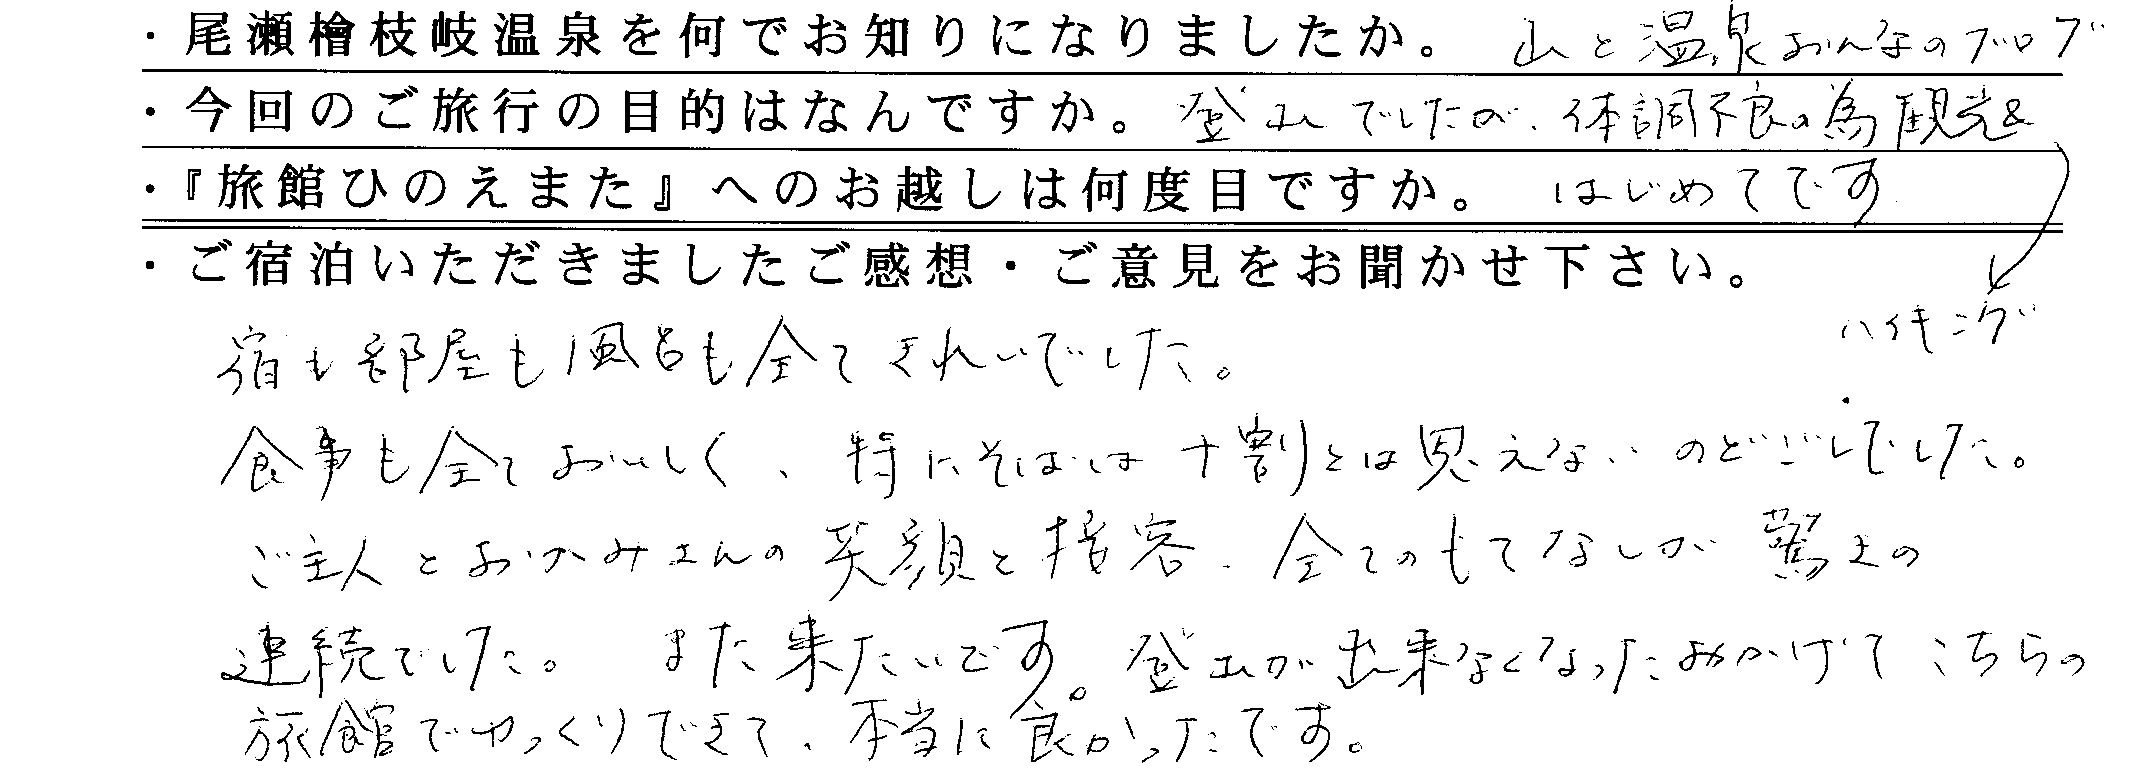 ・尾瀬檜枝岐温泉を何でお知りになりましたか。 山と温泉おんなのブログ
・今回のご旅行の目的はなんですか。 登山でしたが、体調不良の為観光&
・『旅館ひのえまた』へのお越しは何度目ですか。 はじめてです
・ご宿泊いただきましたご感想・ご意見をお聞かせ下さい。
ハイキング
宿も部屋も風呂も全てきれいでした。
食事も全ておいしく、特にそばは十割とは思えないのどごしでした。
ご主人とおかみさんの笑顔と接客、全てのもてなしが驚きの
連続でした。 また来たいです。登山が出来なくなったおかげでこちらの
旅館でゆっくりできて、本当に良かったです。